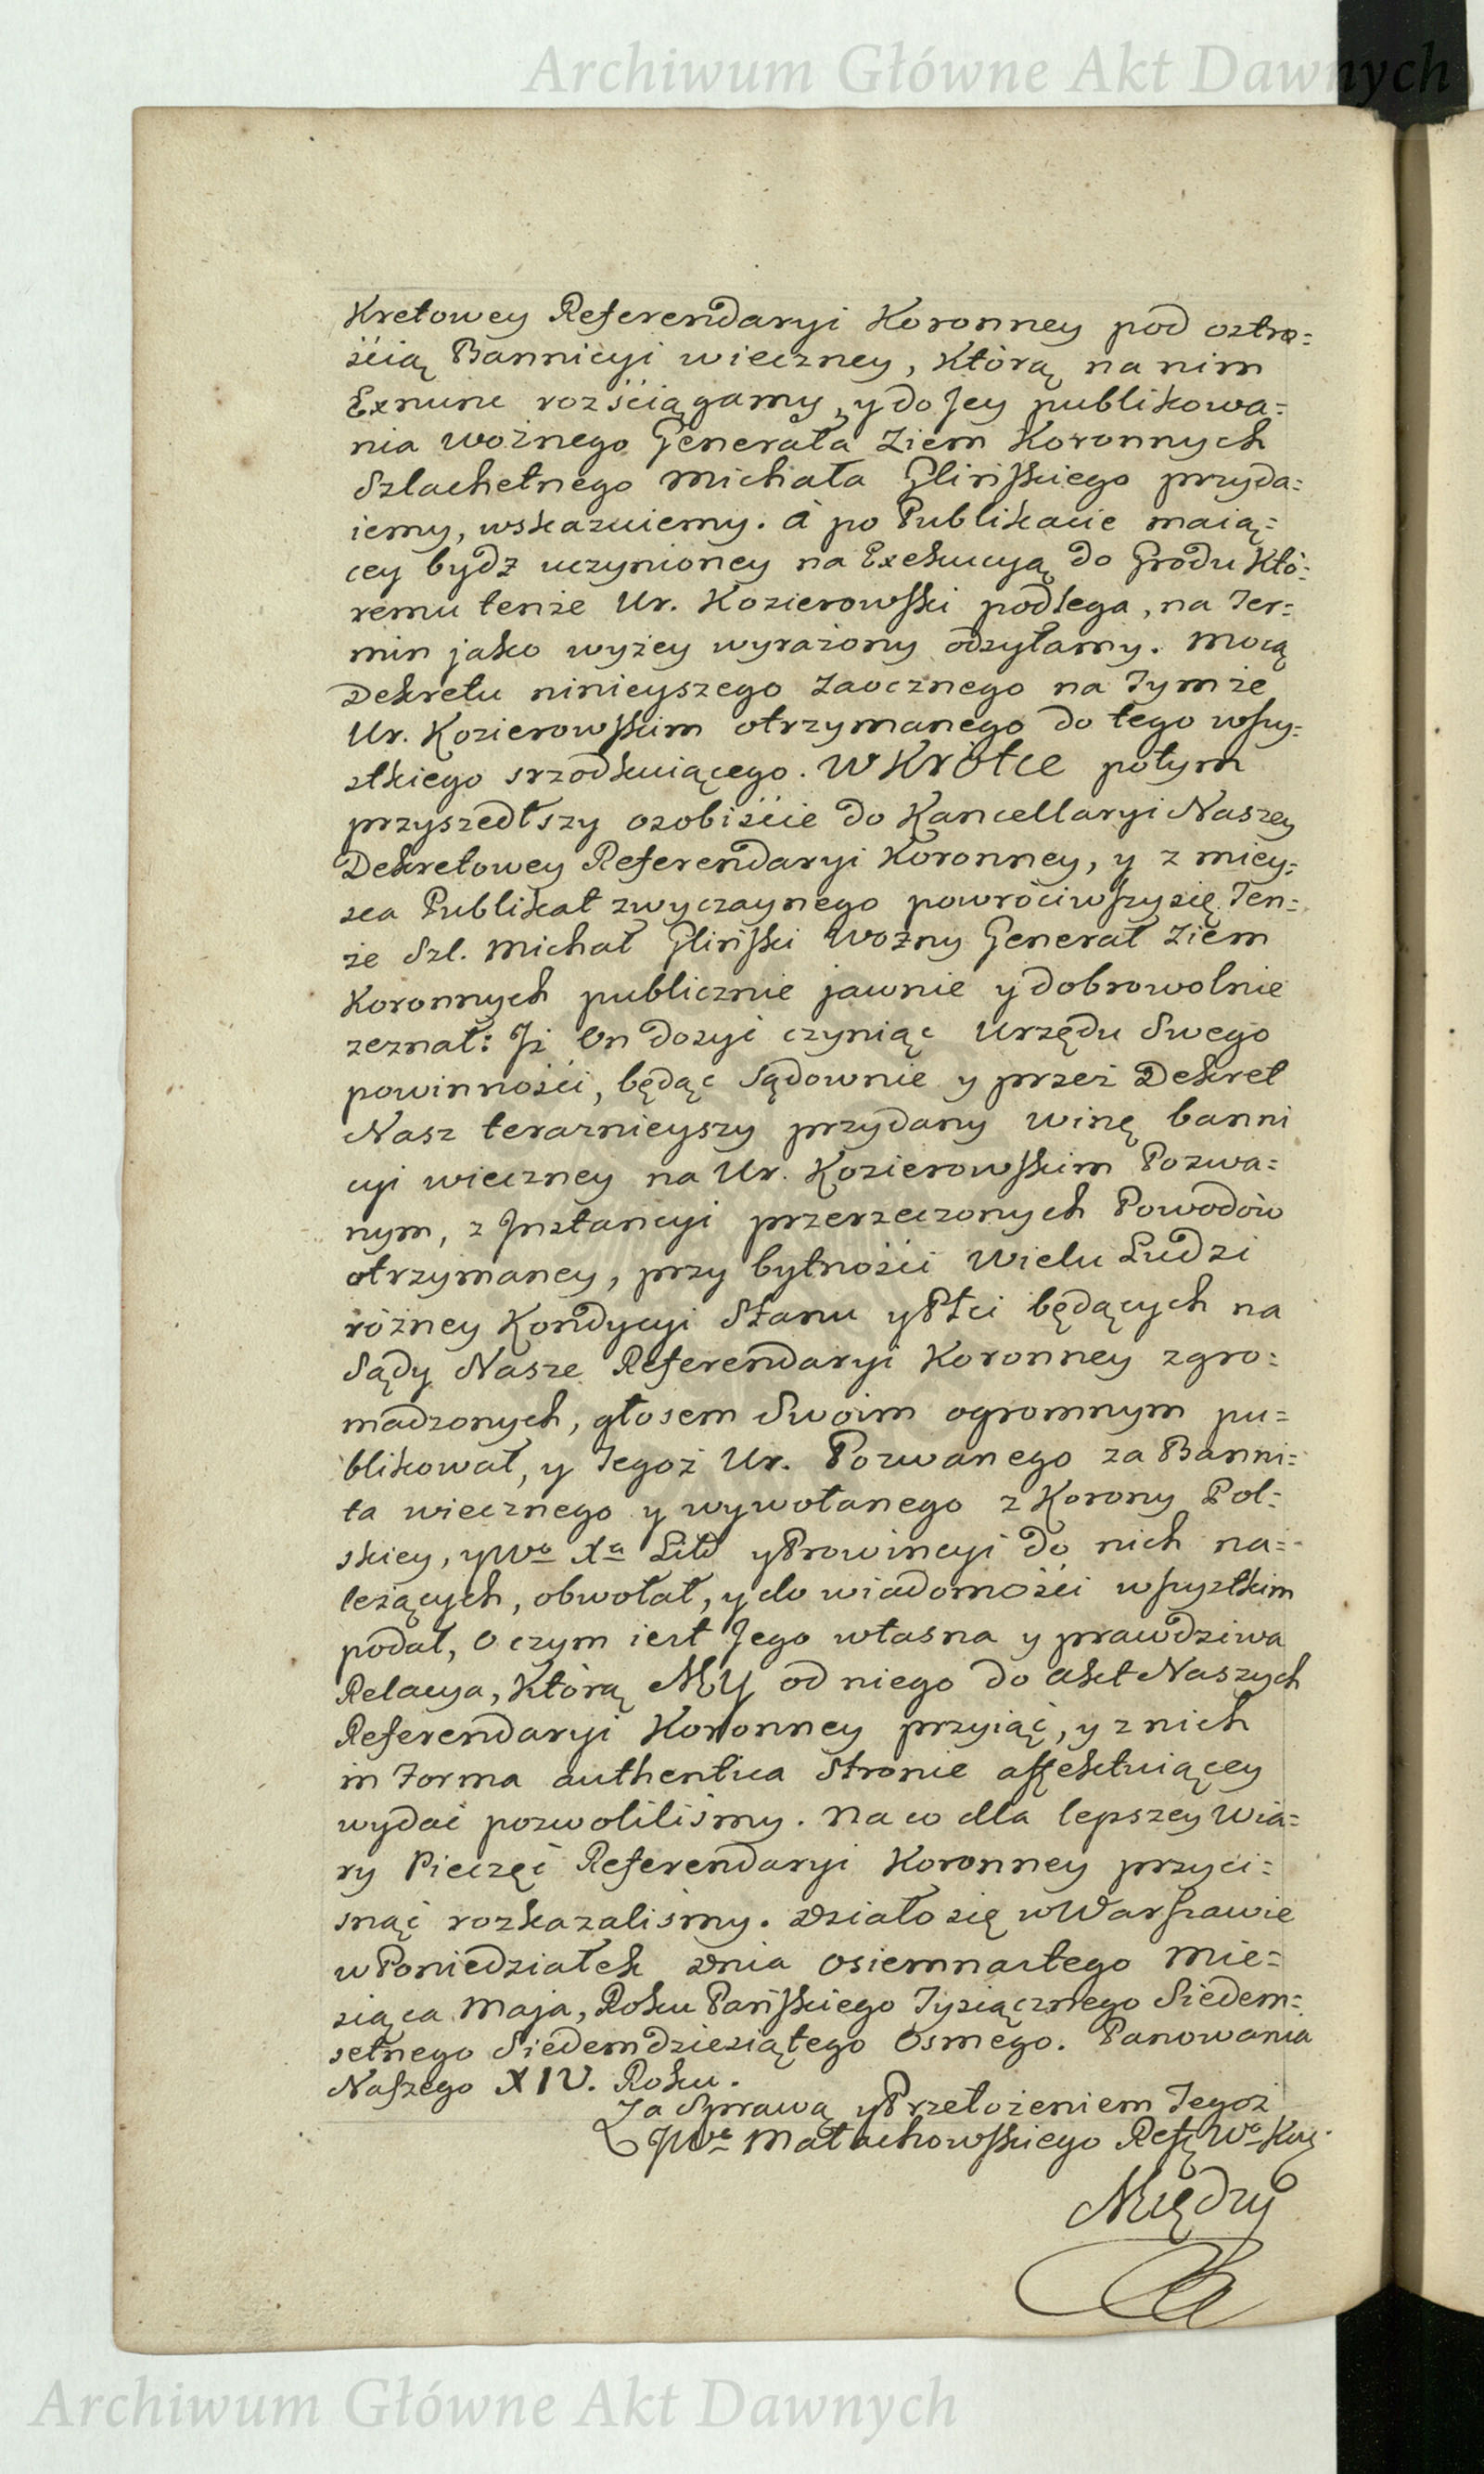 Archiwum Główne Akt Dawnych
kretowey Referendaryi Koronney pod ostro=
ścią Bannicyi wieczney, którą na nim
Exnunc rozściągamy, y do Jey publikowa=
nia woźnego Generała Ziem Koronnych
Szlachetnego Michała Glińskiego przyda=
iemy, wskazuiemy. A po Publikacie maią=
cey bydź uczynioney na Exekucyą do Grodu któ=
remu tenże Ur. Kozierowski podlega, na Ter=
min jako wyżey wyrażony odsyłamy. Mocą
Dekretu ninieyszego zaocznego na Tymże
Ur. Kozierowskim otrzymanego do tego wszy=
stkiego srzodkuiącego. W Krótce potym
przyszedłszy osobiście do Kancellaryi Naszey
Dekretowey Referendaryi Koronney, y z miey=
sca Publikat zwyczaynego powróciwszy się Ten=
że Szl. Michał Gliński Woźny Generał Ziem
Koronnych publicznie jawnie y dobrowolnie
zeznał: Iż On dosyć czyniąc Urzędu Swego
powinności, będąc Sądownie y przez Dekret
Nasz terazniejszy przydany winę banni
cyi wieczney na Ur. Kozierowskim Pozwa=
nym, z Instancyi przerzeczonych Powodów
otrzymaney, przy bytności Wielu Ludzi
różney Kondycyi Stanu y Płci będących na
Sądy Nasze Referendaryi Koronney zgro=
madzonych, głosem Swoim ogromnym pu=
blikował, y Tegoż Ur. Pozwanego za Banni=
ta wiecznego y wywołanego z Korony Pol=
skiey, y Wo Xa Litt y Prowincyi do nich na=
leżących, obwołał, y do wiadomości wszystkim
podał, O czym iest Jego własna y prawdziwa
Relacya, którą MY od niego do akt Naszych
Referendaryi Koronney przyiąć, y z nich
in Forma authentica Stronie affektuiącey
wydać pozwoliliśmy. Na co dla lepszey Wia=
ry Pieczęć Referendaryi Koronney przyci=
snąć rozkazaliśmy. Działo się w Warszawie
w Poniedziałek Dnia Osiemnastego Mie=
siąca Maja, Roku Pańskiego Tysiącznego Siedem=
setnego Siedemdziesiątego Osmego. Panowania
Naszego XIV. Roku.
Za Sprawą y Przełożeniem Tegoż
JWo Małachowskiego Ref. Wo Kor.
Między
Archiwum Główne Akt Dawnych